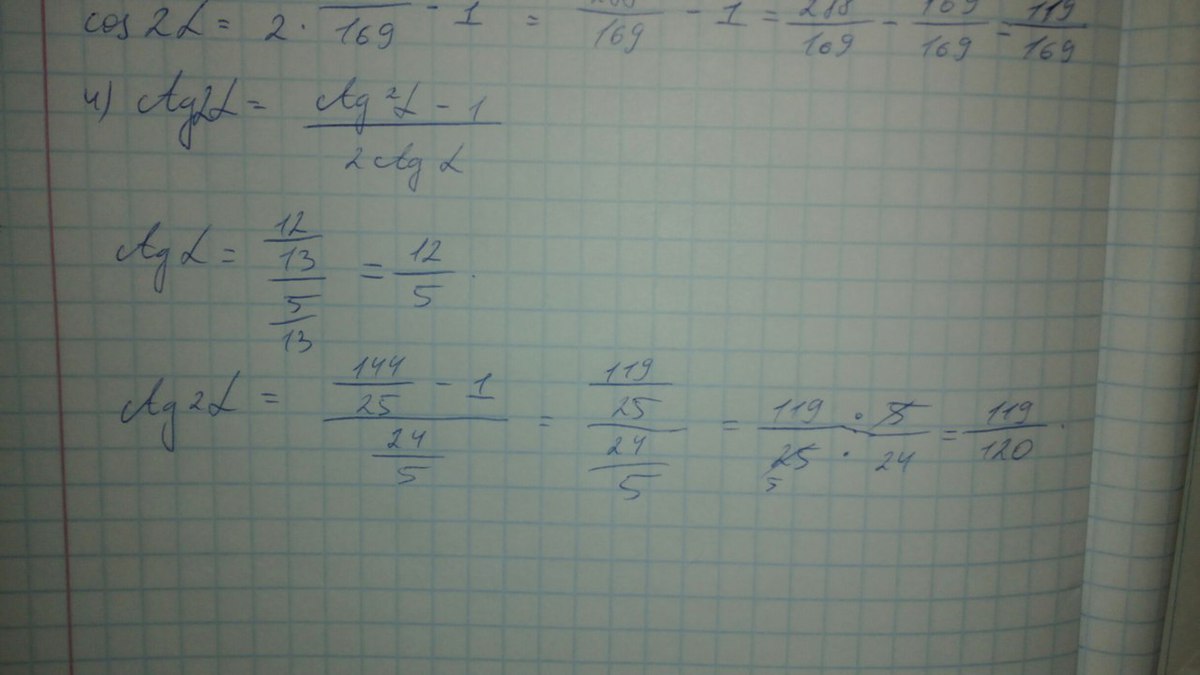 cos 2α = 2 · /169 - 1 = 288/169 - 1 = 288/169 - 169/169 = 119/169
4) ctg2α = (ctg²α - 1)/(2ctgα)
ctgα = (12/13)/(5/13) = 12/5.
ctg2α = (144/25 - 1)/(24/5) = (119/25)/(24/5) = 119/25 · 5/24 = 119/120.